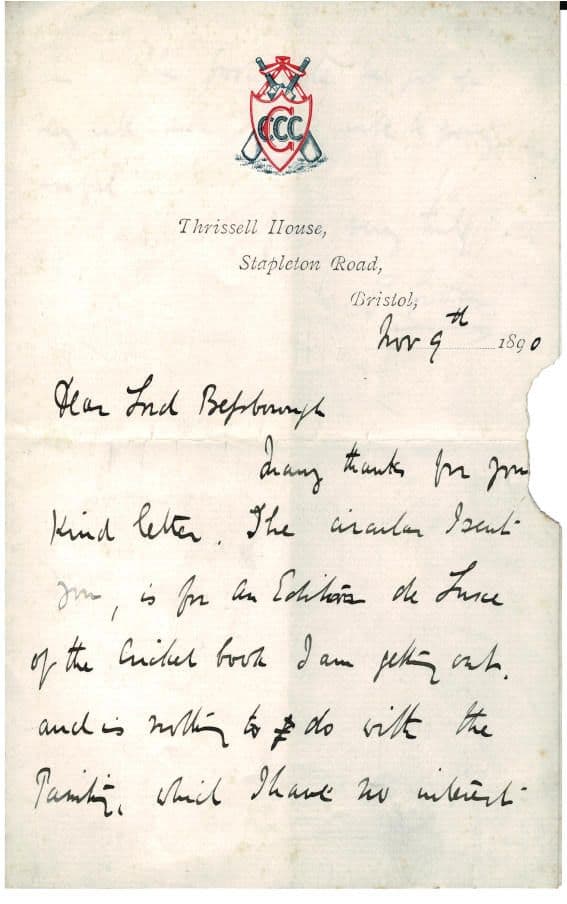 CCCC
Thrissell House,
Stapleton Road,
Bristol,
Nov 9th 1890
Dear Lord Bessborough
Many thanks for your
kind letter. The circular I sent
you, is for an Edition de Luxe
of the Cricket book I am getting out.
and is nothing to do with the
Painting, which I have no interest